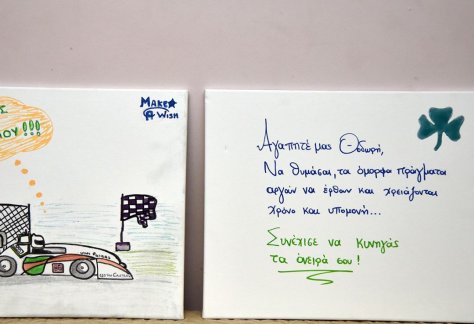 ΜΟΥ!!!
MAKE
A WISH
Αγαπητέ μας Θοδωρή,
Να θυμάσαι, τα όμορφα πράγματα
αργούν να έρθουν και χρειάζονται
χρόνο και υπομονή...
Συνέχισε να κυνηγάς
τα όνειρά σου!